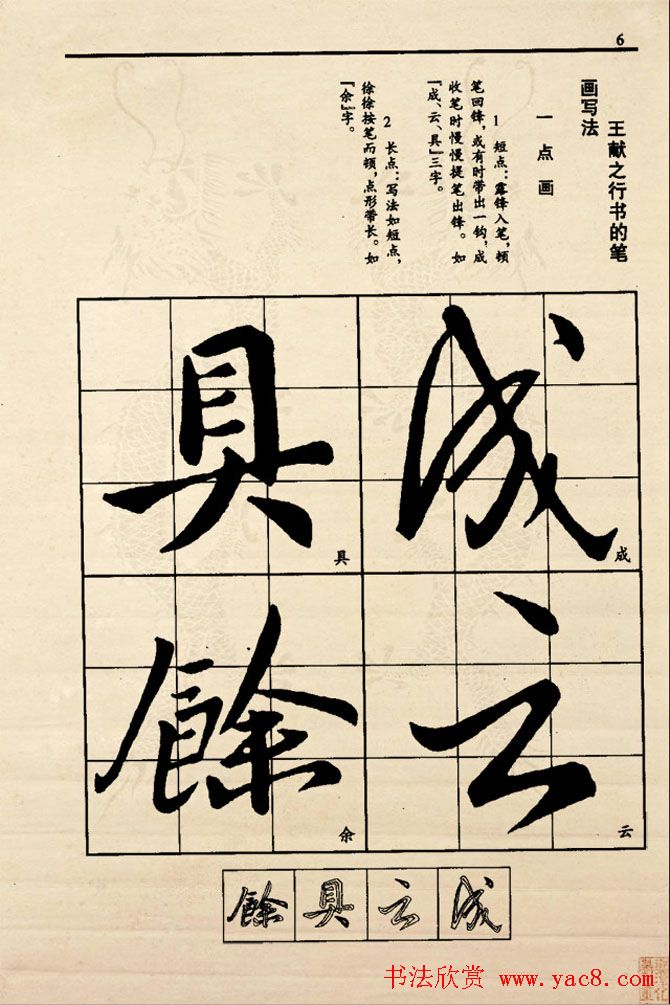 6
王献之行书的笔
画写法
一点画
1 短点：露锋入笔，顿
笔回锋，或有时带出一钩，成
收笔时慢慢提笔出锋。如
“成、云、具”三字。
2 长点：写法如短点，
徐徐按笔而顿，点形带长。如
“余”字。
成
成
云
云
具
具
餘
余
餘具云成
书法欣赏 www.yac8.com